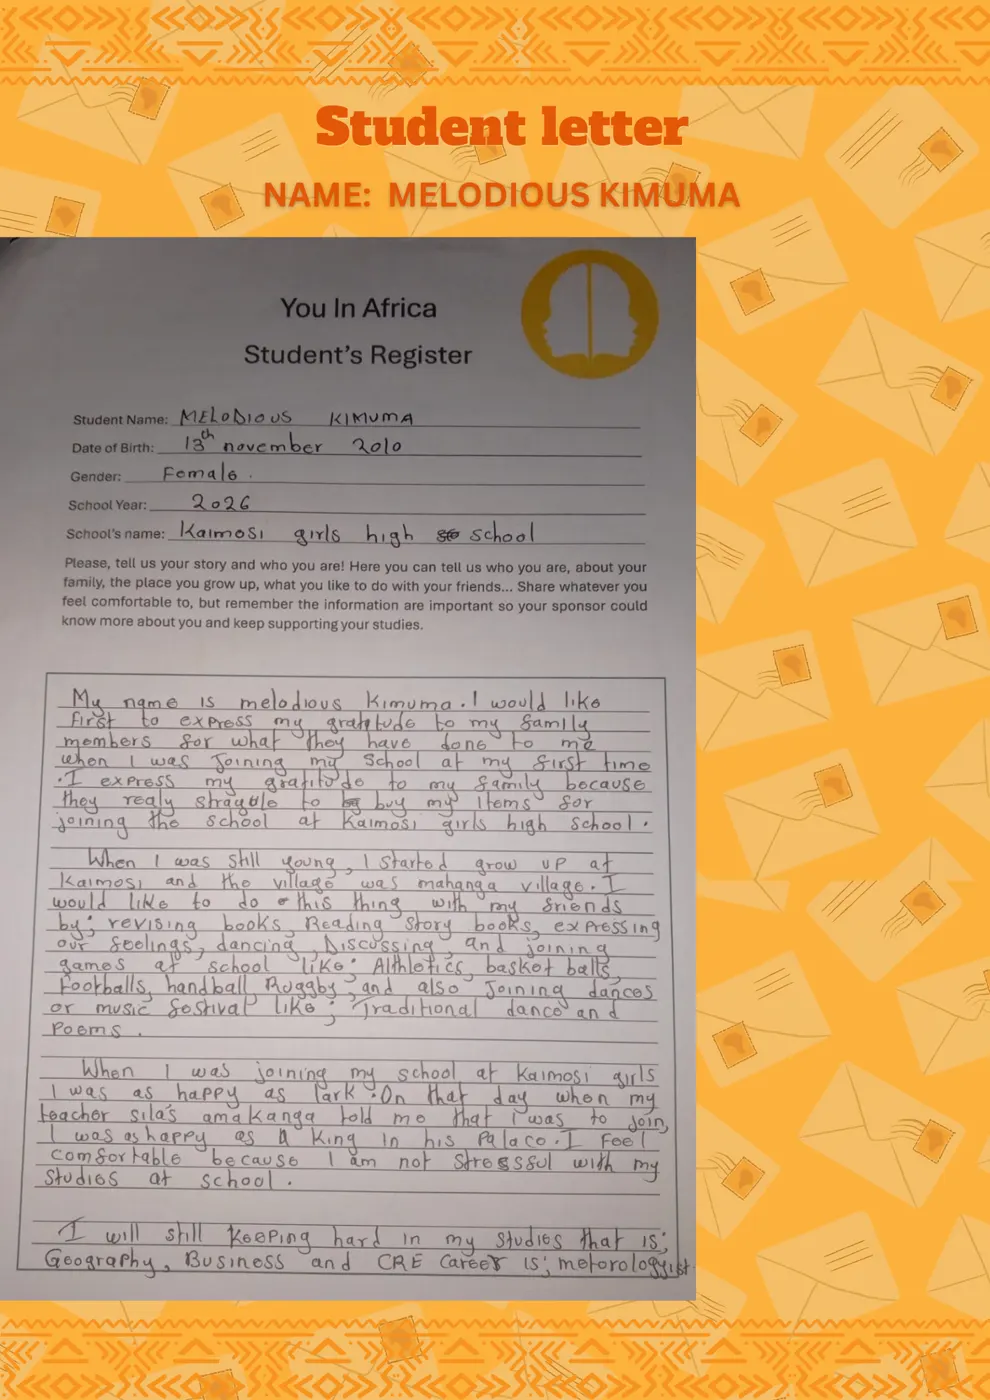 Student letter
NAME: MELODIOUS KIMUMA
You In Africa
Student's Register
Student Name: MELODIOUS KIMUMA
Date of Birth: 13th november 2010
Gender: Female.
School Year: 2026
School's name: Kaimosi girls high school
Please, tell us your story and who you are! Here you can tell us who you are, about your
family, the place you grow up, what you like to do with your friends... Share whatever you
feel comfortable to, but remember the information are important so your sponsor could
know more about you and keep supporting your studies.
My name is melodious Kimuma. I would like
first to express my gratitude to my family
members for what they have done to me
when I was Joining my School at my first time
.I express my gratitude to my family because
they realy straggle to buy my Items for
joining the school at Kaimosi girls high school.
When I was still young, I started grow up at
Kaimosi and the village was mahanga village. I
would like to do this thing with my friends
by; revising books, Reading story books, expressing
our feelings, dancing, Discussing and joining
games at school like: Althletics, basket balls,
Footballs, handball, Ruggby, and also Joining dances
or music festival like; Traditional dance and
Poems.
When I was joining my school at Kaimosi girls
I was as happy as lark. On that day when my
teacher silas amakanga told me that I was to join,
I was as happy as A King in his Palace. I feel
comfortable because I am not stressful with my
studies at school.
I will still Keeping hard in my studies that is;
Geography, Business and CRE Career is; metorologyist.